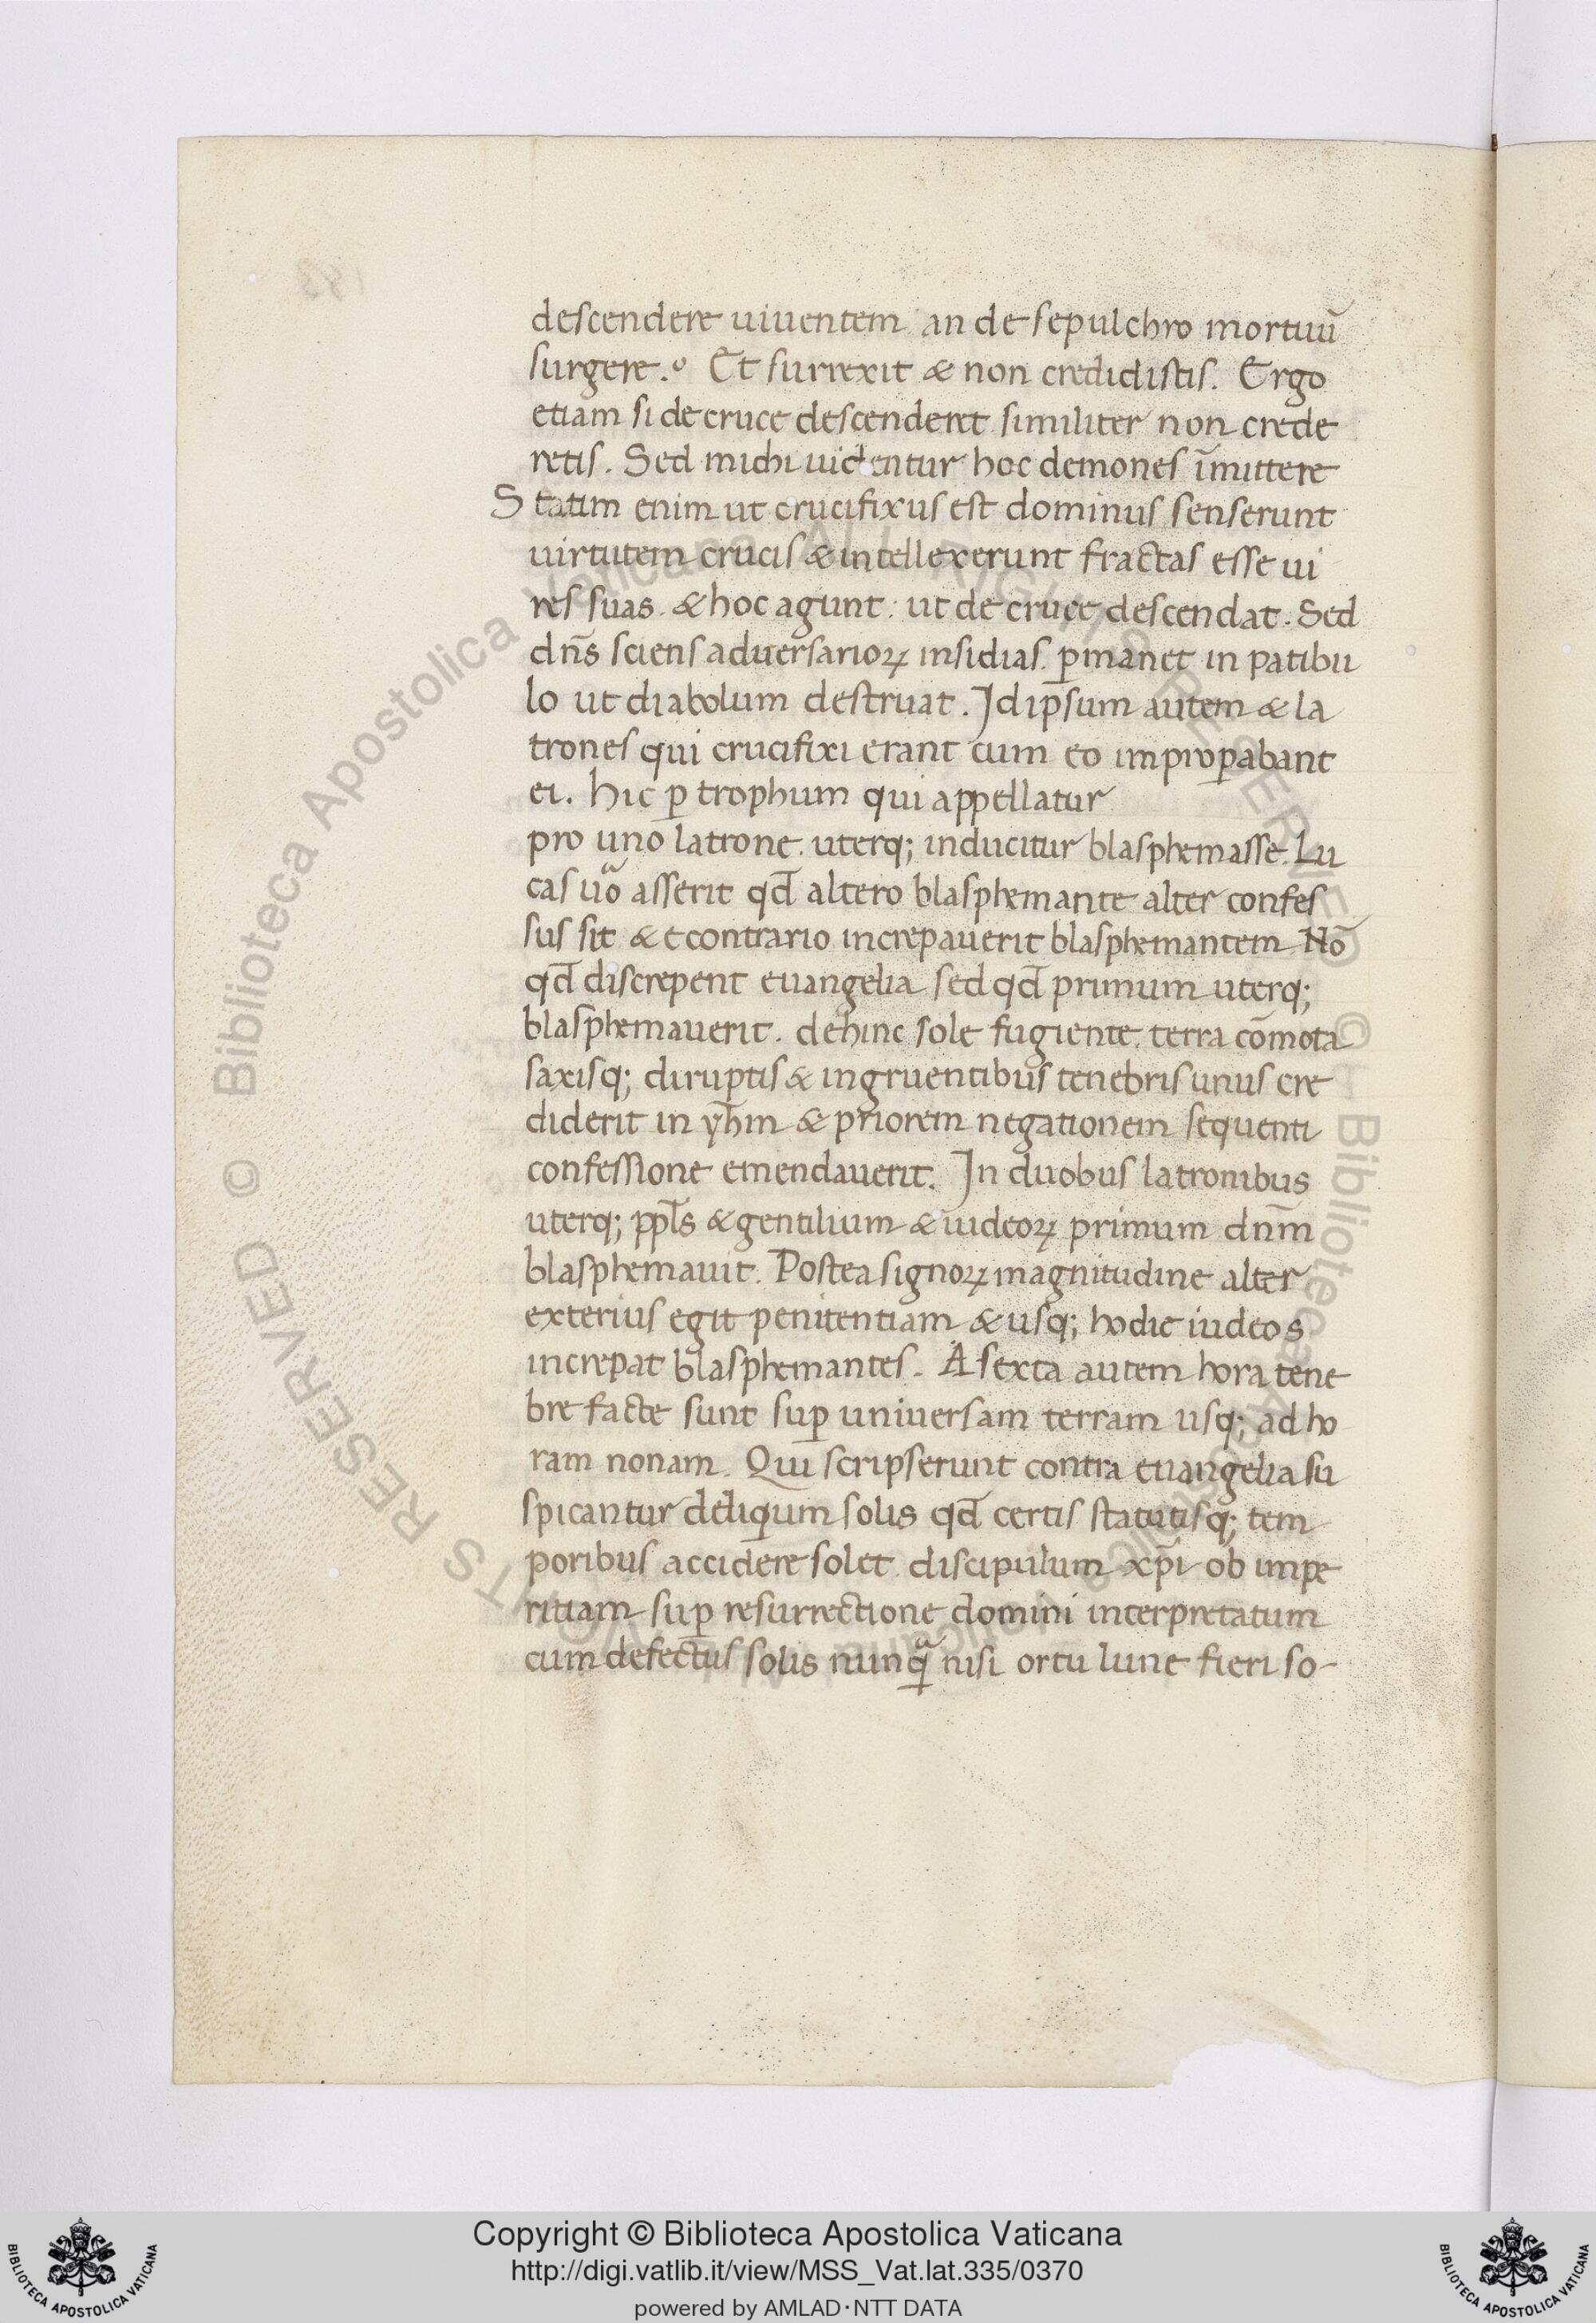 descendere uiuentem an de sepulchro mortuū
surgere.º Et surrexit & non credidistis. Ergo
etiam si de cruce descenderet similiter non crede
retis. Sed michi uidentur hoc demones īmittere
Statim enim ut crucifixus est dominus senserunt
uirtutem crucis & intellexerunt fractas esse ui
res suas. & hoc agunt: ut de cruce descendat. Sed
dn̄s sciens aduersarioꝝ insidias. ꝑmanet in patibu
lo ut diabolum destruat. Idip̄sum autem & la
trones qui crucifixi erant cum eo improꝑabant
ei. hic ꝑ trophum qui appellatur
pro uno latrone. uterq; inducitur blasphemasse. Lu
cas uͣo asserit qd̄ altero blasphemante alter confes
sus sit & e contrario increpauerit blasphemantem. Nō
qd̄ discrepent euangelia sed qd̄ primum uterq;
blasphemauerit. dehinc sole fugiente. terra cōmota
saxisq; diruptis & ingruentibus tenebris unus cre
diderit in yh̄m & priorem negationem sequenti
confessione emendauerit. In duobus latronibus
uterq; ppl̄s & gentilium & iudeoꝝ primum dn̄m
blasphemauit. Postea signoꝝ magnitudine alter
exterius egit penitentiam & usq; hodie iudeos
increpat blasphemantes. A sexta autem hora tene
bre facte sunt suꝑ uniuersam terram usq; ad ho
ram nonam. Qui scripserunt contra euangelia su
spicantur deliquium solis qd̄ certis statutisq; tem
poribus accidere solet. discipulum xp̄i ob impe
ritiam suꝑ resurrectione domini interpretatum
cum defectus solis nunqͣ nisi ortu lune fieri so-
© Biblioteca Apostolica Vaticana ALL RIGHTS RESERVED
Copyright © Biblioteca Apostolica Vaticana
http://digi.vatlib.it/view/MSS_Vat.lat.335/0370
powered by AMLAD·NTT DATA
BIBLIOTECA APOSTOLICA VATICANA
BIBLIOTECA APOSTOLICA VATICANA